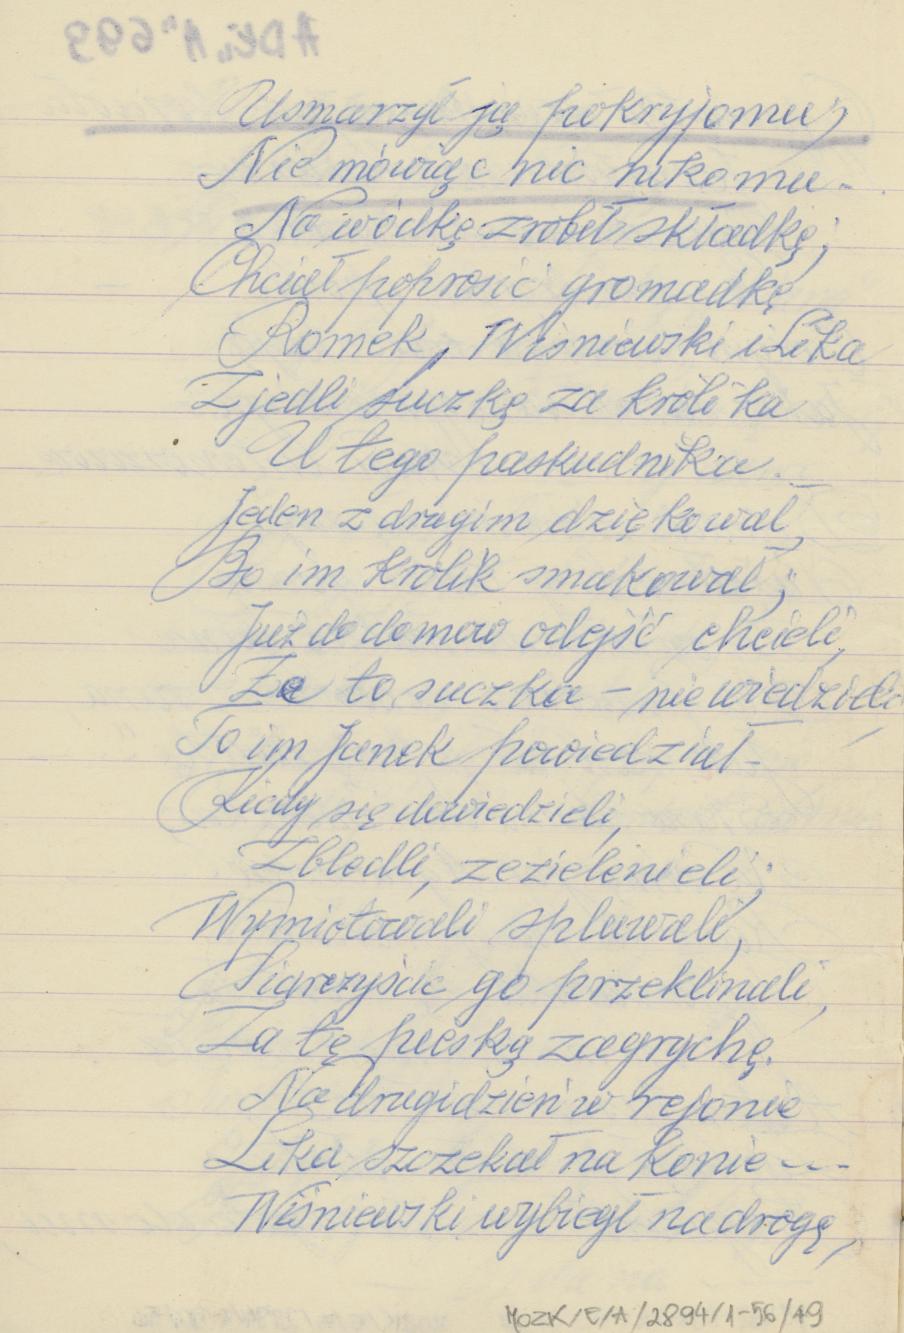 Usmarzył ją pokryjomu,
Nie mówiąc nic nikomu.
Na wódkę zrobił składkę;
Chciał poprosić gromadkę
Romek, Wiśniewski i Lika
Zjedli suczkę za królika
U tego paskudnika.
Jeden z drugim dziękował,
Bo im królik smakował;
Już do domów odejść chcieli,
Że to suczka – nie wiedzieli
To im Janek powiedział –
Kiedy się dowiedzieli,
Zbledli, zezielenieli;
Wymiotowali spluwali,
Siarczyście go przeklinali,
Za tę pieską zagrychę.
Na drugi dzień w rejonie
Lika szczekał na konie ---
Wiśniewski wybiegł na drogę,
MOZK/E/A/2894/1-56/49